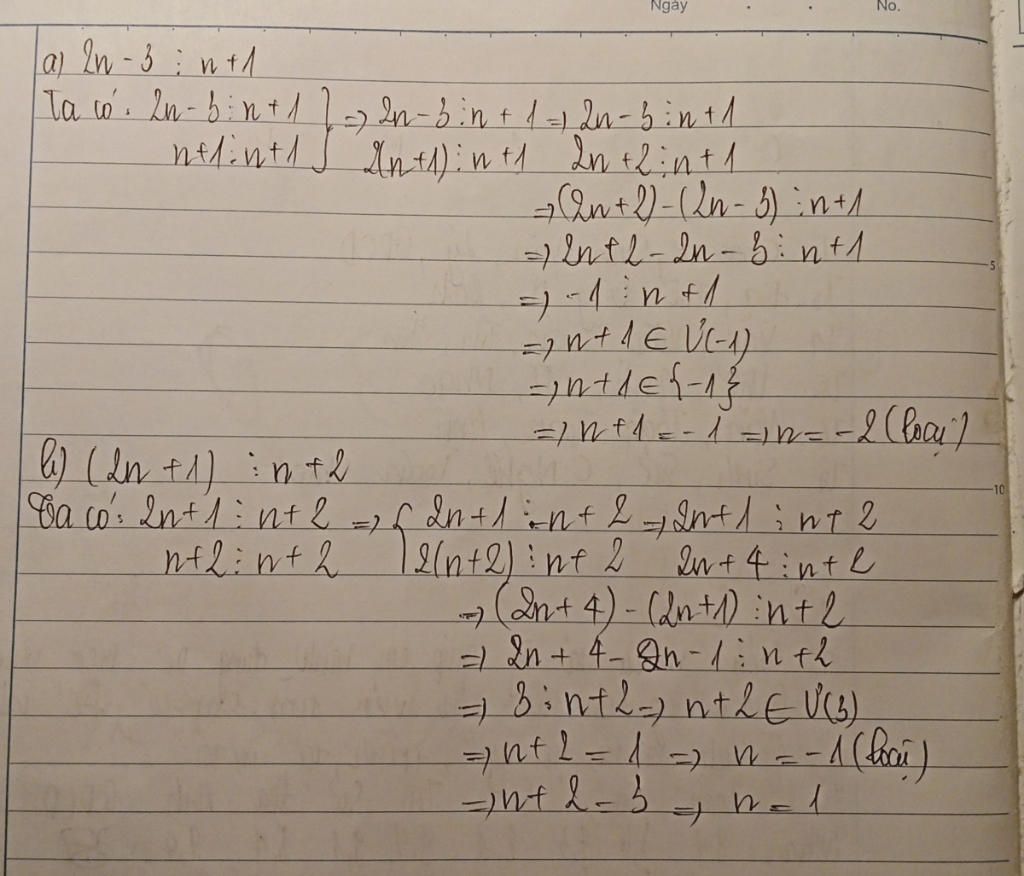 Ngày . . No.
a) 2n - 3 ⋮ n+1
Ta có: 2n - 3 ⋮ n + 1 } => 2n - 3 ⋮ n + 1 => 2n - 3 ⋮ n+1
n+1 ⋮ n+1 2(n+1) ⋮ n+1 2n + 2 ⋮ n+1
=> (2n+2) - (2n - 3) ⋮ n+1
=> 2n + 2 - 2n - 3 ⋮ n+1
5
=> -1 ⋮ n + 1
=> n + 1 ∈ Ư(-1)
=> n + 1 ∈ {-1}
=> n + 1 = -1 => n = -2 (loại)
b) (2n + 1) ⋮ n + 2
10
Ta có: 2n+1 ⋮ n + 2 => { 2n+1 ⋮ n + 2 => 2n+1 ⋮ n + 2
n+2 ⋮ n + 2 2(n+2) ⋮ n + 2 2n + 4 ⋮ n + 2
=> (2n + 4) - (2n+1) ⋮ n + 2
=> 2n + 4 - 2n - 1 ⋮ n+2
=> 3 ⋮ n+2 => n+2 ∈ Ư(3)
=> n + 2 = 1 => n = -1 (loại)
=> n + 2 = 3 => n = 1